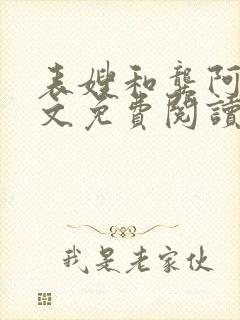 表嫂和龔阿
文免費閱讀
我是老家伙